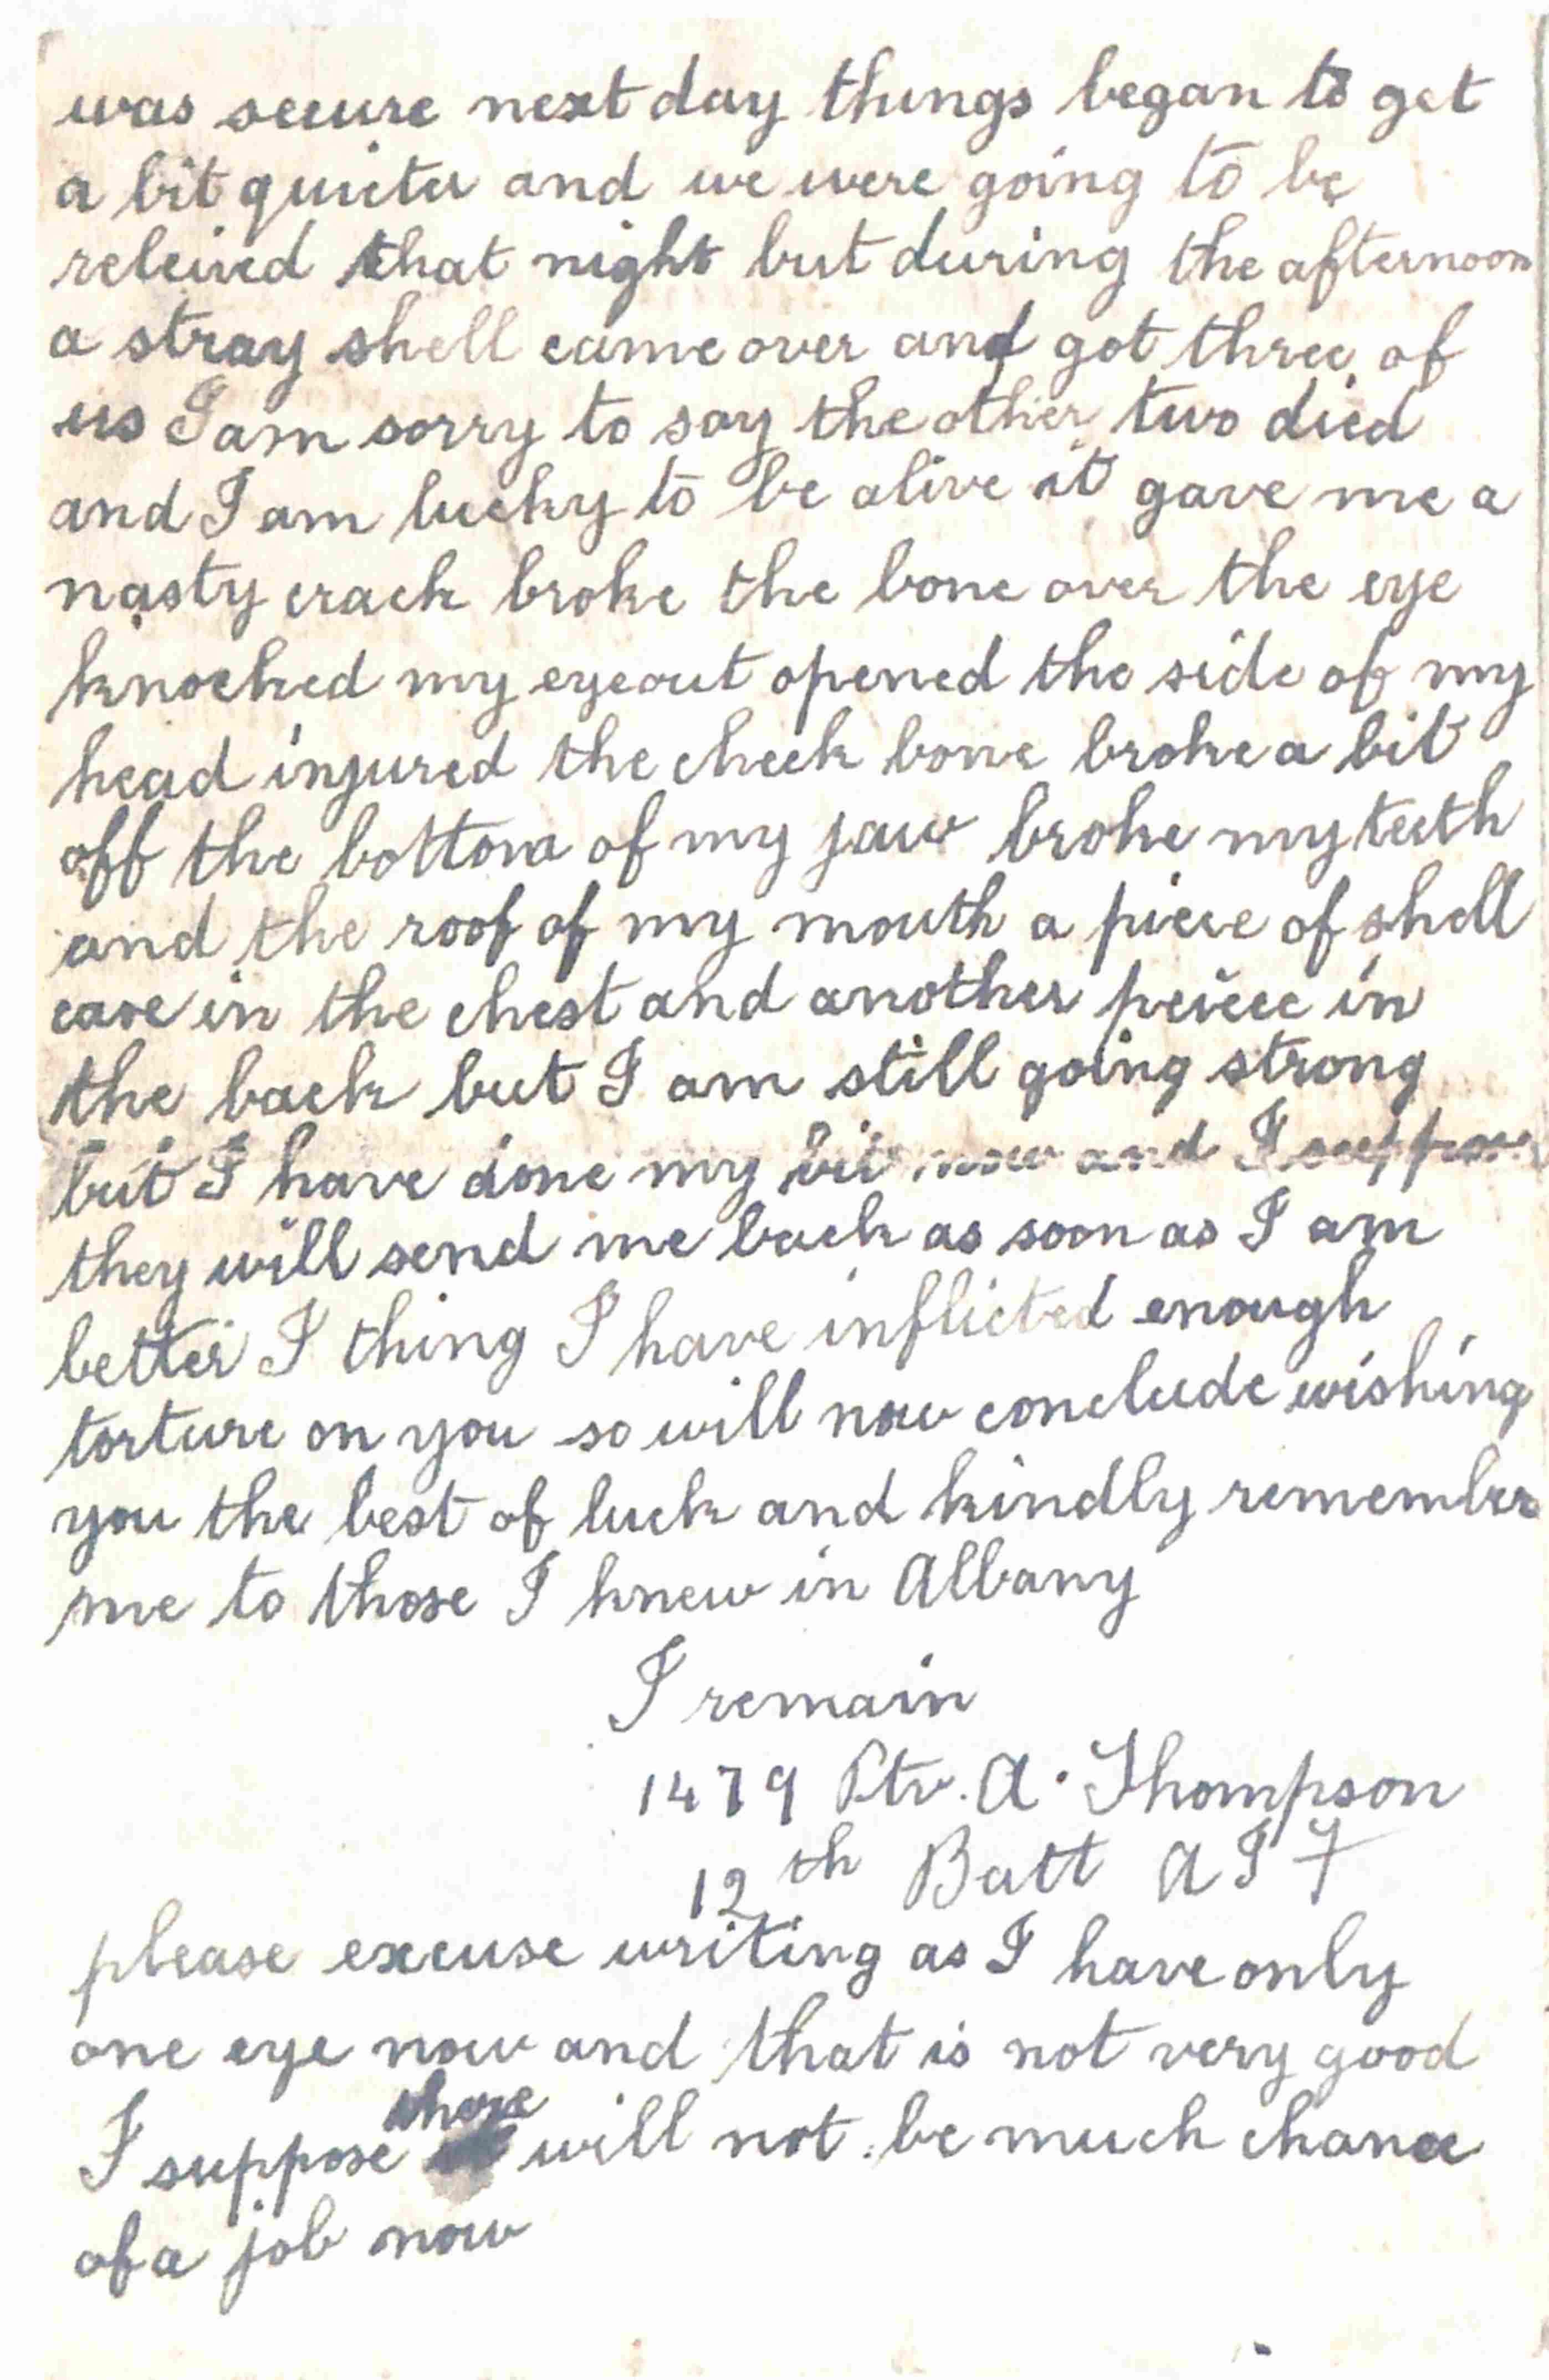 was secure next day things began to get
a bit quieter and we were going to be
releived that night but during the afternoon
a stray shell came over and got three of
us I am sorry to say the other two died
and I am lucky to be alive it gave me a
nasty crack broke the bone over the eye
knocked my eye out opened the side of my
head injured the cheek bone broke a bit
off the bottom of my jaw broke my teeth
and the roof of my mouth a piece of shell
case in the chest and another peiece in
the back but I am still going strong
but I have done my bit now and I suppose
they will send me back as soon as I am
better I thing I have inflicted enough
torture on you so will now conclude wishing
you the best of luck and kindly remember
me to those I knew in Albany
I remain
1479 Ptv. A. Thompson
12th Batt A I F
please excuse writing as I have only
one eye now and that is not very good
I suppose there will not be much chance
of a job now